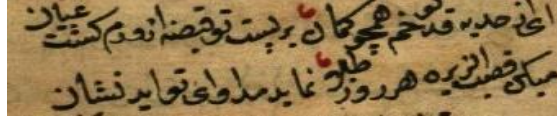 ای از حدبه قد تو خم همچو کمان بر پشت تو قبضه از ورم گشت عیان
میکن قصب الزیره هر روز طلا نماید مداوای تو اید نشان